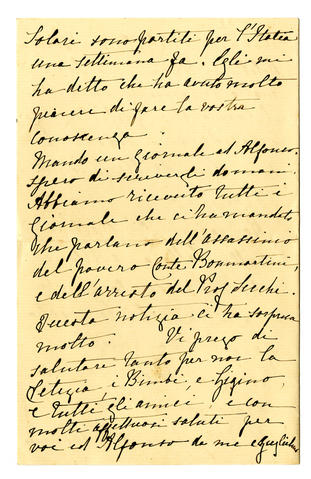 Solari sono partiti per l'Italia
una settimana fa. Egli mi
ha detto che ha avuto molto
piacere di fare la vostra
conoscenza.
Mando un giornale ad Alfonso
spero di scrivergli domani.
Abbiamo ricevuto tutti i
giornale che ci ha mandato
che parlano dell'assassinio
del povero Conte Bonmartini,
e dell'arresto del Prof Secchi.
Questa notizia ci ha sorpresa
molto. Vi prego di
salutare tanto per noi la
Letizia, i Bimbi, e Gigino,
e tutti gli amici, e con
molti affettuosi saluti per
voi ed Alfonso da me e Guglielmo